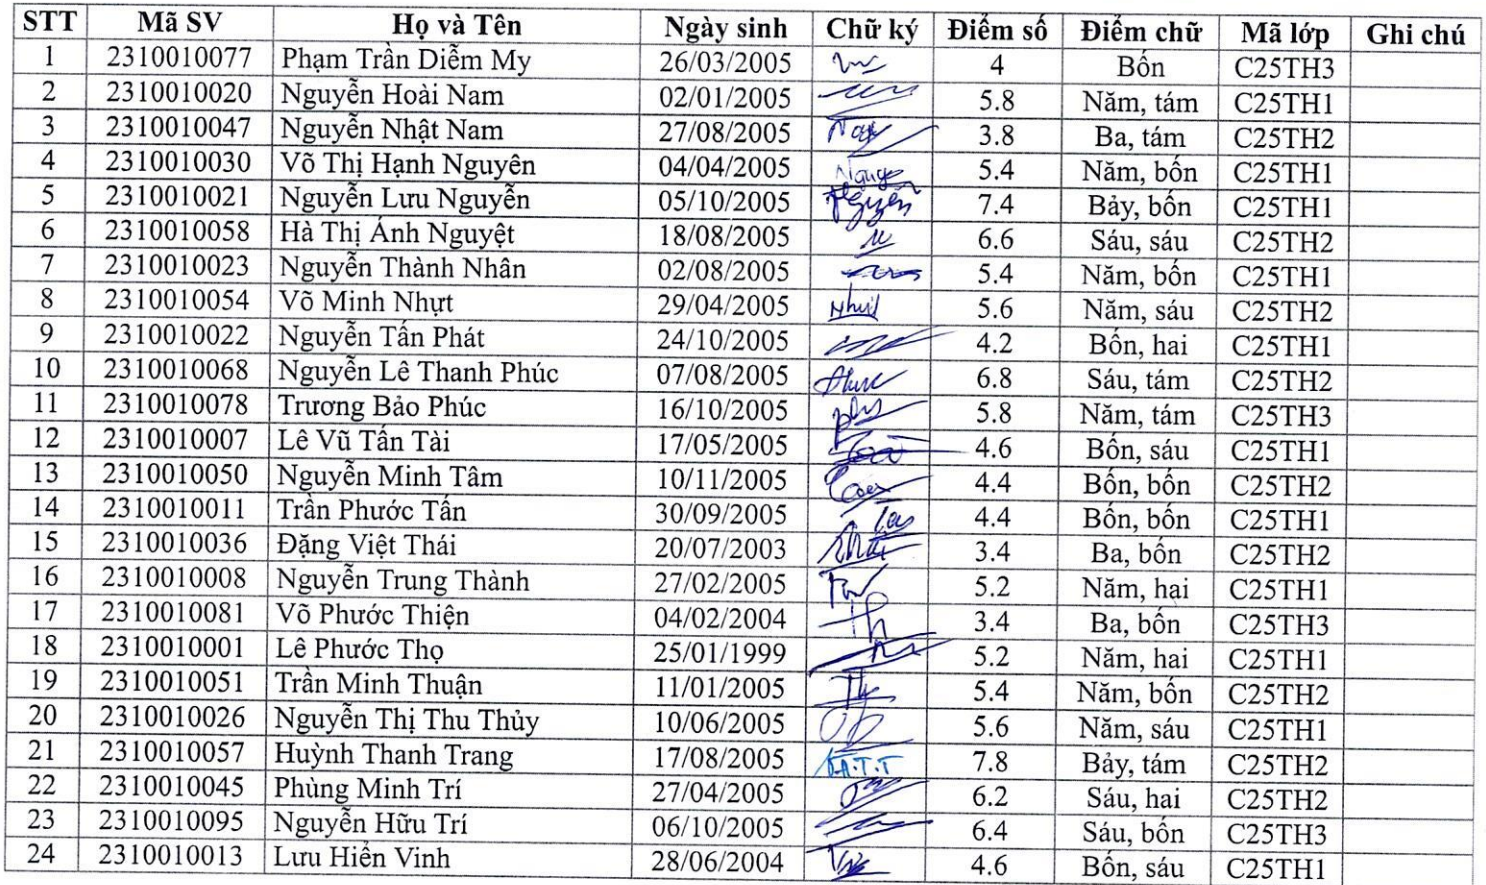 STT Mã SV Họ và Tên Ngày sinh Chữ ký Điểm số Điểm chữ Mã lớp Ghi chú
1 2310010077 Phạm Trần Diễm My 26/03/2005 4 Bốn C25TH3
2 2310010020 Nguyễn Hoài Nam 02/01/2005 5.8 Năm, tám C25TH1
3 2310010047 Nguyễn Nhật Nam 27/08/2005 3.8 Ba, tám C25TH2
4 2310010030 Võ Thị Hạnh Nguyên 04/04/2005 5.4 Năm, bốn C25TH1
5 2310010021 Nguyễn Lưu Nguyễn 05/10/2005 Nguyễn 7.4 Bảy, bốn C25TH1
6 2310010058 Hà Thị Ánh Nguyệt 18/08/2005 6.6 Sáu, sáu C25TH2
7 2310010023 Nguyễn Thành Nhân 02/08/2005 5.4 Năm, bốn C25TH1
8 2310010054 Võ Minh Nhựt 29/04/2005 5.6 Năm, sáu C25TH2
9 2310010022 Nguyễn Tấn Phát 24/10/2005 4.2 Bốn, hai C25TH1
10 2310010068 Nguyễn Lê Thanh Phúc 07/08/2005 6.8 Sáu, tám C25TH2
11 2310010078 Trương Bảo Phúc 16/10/2005 5.8 Năm, tám C25TH3
12 2310010007 Lê Vũ Tấn Tài 17/05/2005 4.6 Bốn, sáu C25TH1
13 2310010050 Nguyễn Minh Tâm 10/11/2005 4.4 Bốn, bốn C25TH2
14 2310010011 Trần Phước Tấn 30/09/2005 4.4 Bốn, bốn C25TH1
15 2310010036 Đặng Việt Thái 20/07/2003 3.4 Ba, bốn C25TH2
16 2310010008 Nguyễn Trung Thành 27/02/2005 5.2 Năm, hai C25TH1
17 2310010081 Võ Phước Thiện 04/02/2004 3.4 Ba, bốn C25TH3
18 2310010001 Lê Phước Thọ 25/01/1999 5.2 Năm, hai C25TH1
19 2310010051 Trần Minh Thuận 11/01/2005 5.4 Năm, bốn C25TH2
20 2310010026 Nguyễn Thị Thu Thủy 10/06/2005 5.6 Năm, sáu C25TH1
21 2310010057 Huỳnh Thanh Trang 17/08/2005 7.8 Bảy, tám C25TH2
22 2310010045 Phùng Minh Trí 27/04/2005 6.2 Sáu, hai C25TH2
23 2310010095 Nguyễn Hữu Trí 06/10/2005 6.4 Sáu, bốn C25TH3
24 2310010013 Lưu Hiển Vinh 28/06/2004 4.6 Bốn, sáu C25TH1